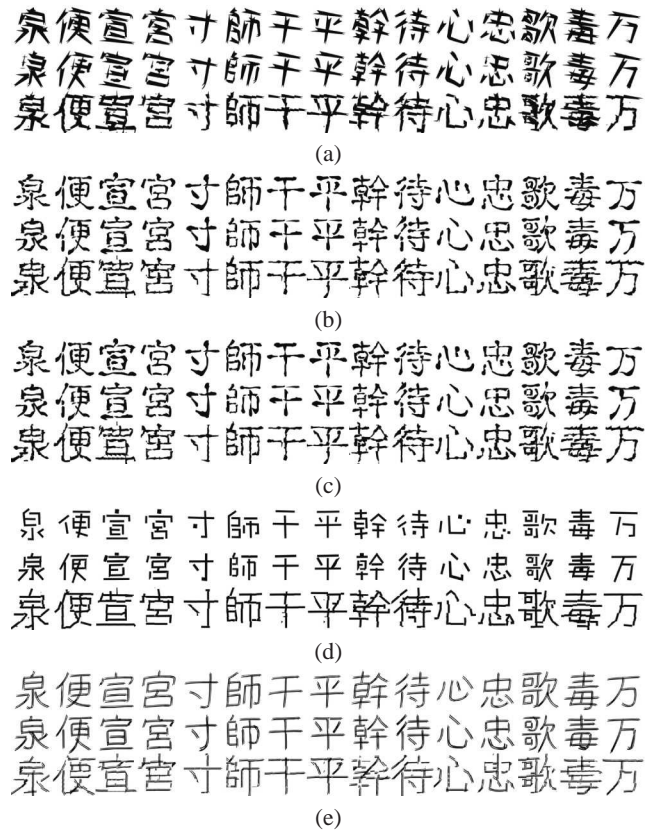 泉便宣宮寸師干平幹待心忠歌毒万
泉便宣宮寸師干平幹待心忠歌毒万
泉便宣宮寸師干平幹待心忠歌毒万
(a)
泉便宣宮寸師干平幹待心忠歌毒万
泉便宣宮寸師干平幹待心忠歌毒万
泉便宣宮寸師干平幹待心忠歌毒万
(b)
泉便宣宮寸師干平幹待心忠歌毒万
泉便宣宮寸師干平幹待心忠歌毒万
泉便宣宮寸師干平幹待心忠歌毒万
(c)
泉便宣宮寸師干平幹待心忠歌毒万
泉便宣宮寸師干平幹待心忠歌毒万
泉便宣宮寸師干平幹待心忠歌毒万
(d)
泉便宣宮寸師干平幹待心忠歌毒万
泉便宣宮寸師干平幹待心忠歌毒万
泉便宣宮寸師干平幹待心忠歌毒万
(e)